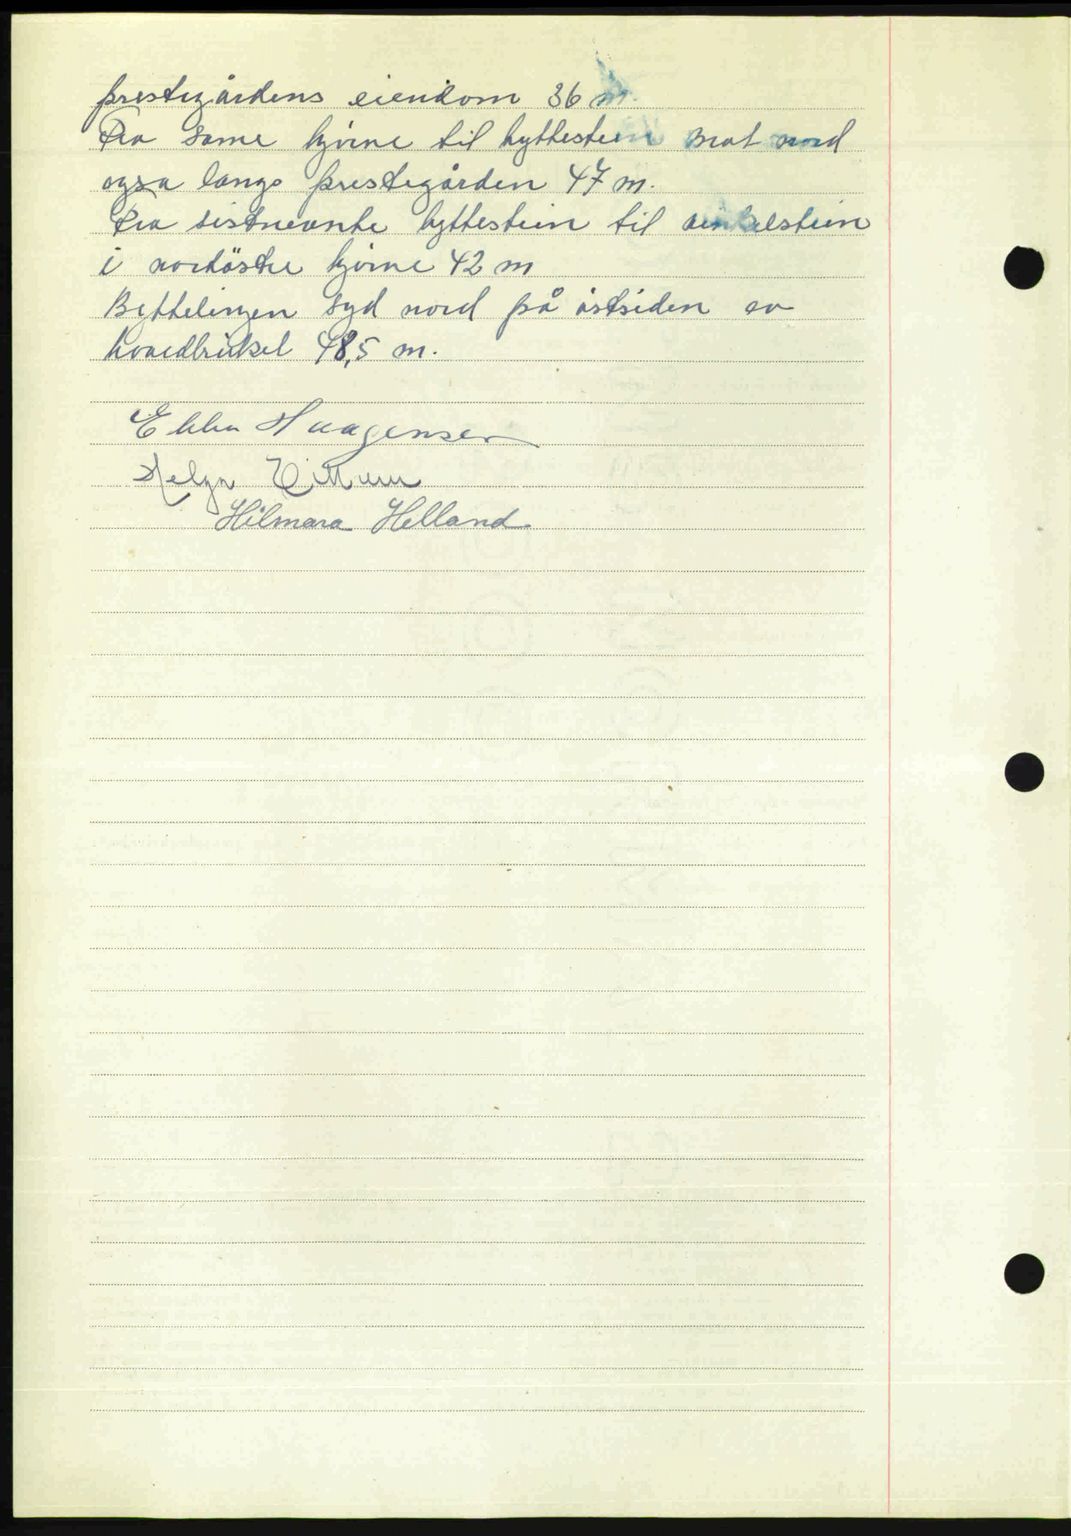 prestegårdens eiendom 36 m.
Fra same hjörne til byttestein mot nord
også langs prestegården 47 m.
Fra sistnevnte byttestein til vinkelstein
i nordöstre hjörne 42 m
Byttelingen syd nord på östsiden av
hovedbruket 48,5 m.
Ebba Haagensen
Helga
Hilmara Helland